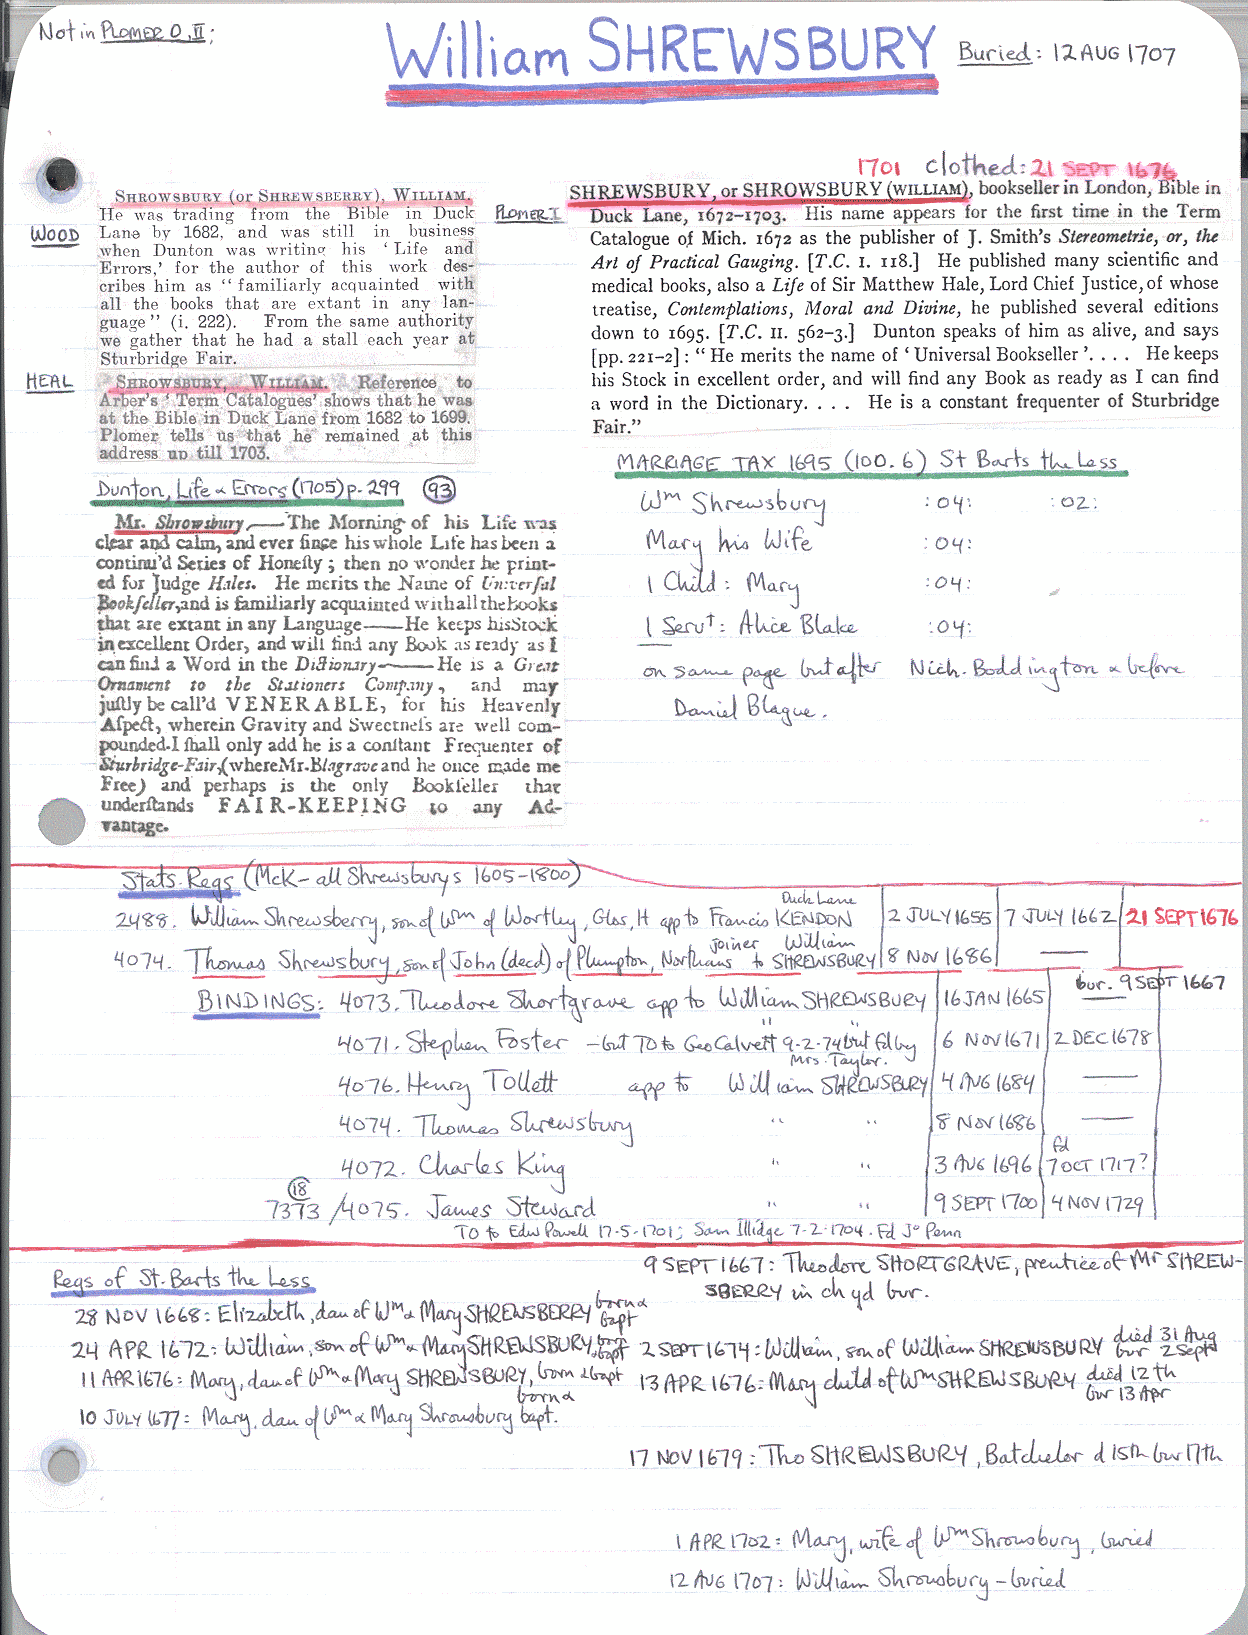 Not in PLOMER O, II;
William SHREWSBURY
Buried: 12 AUG 1707
1701 clothed: 21 SEPT 1676
WOOD
SHROWSBURY (or SHREWSBERRY), WILLIAM.
He was trading from the Bible in Duck
Lane by 1682, and was still in business
when Dunton was writing his 'Life and
Errors,' for the author of this work des-
cribes him as "familiarly acquainted with
all the books that are extant in any lan-
guage" (i. 222). From the same authority
we gather that he had a stall each year at
Sturbridge Fair.
HEAL
SHROWSBURY, WILLIAM. Reference to
Arber's 'Term Catalogues' shows that he was
at the Bible in Duck Lane from 1682 to 1699.
Plomer tells us that he remained at this
address up till 1703.
PLOMER I
SHREWSBURY, or SHROWSBURY (WILLIAM), bookseller in London, Bible in
Duck Lane, 1672–1703. His name appears for the first time in the Term
Catalogue of Mich. 1672 as the publisher of J. Smith's Stereometrie, or, the
Art of Practical Gauging. [T.C. I. 118.] He published many scientific and
medical books, also a Life of Sir Matthew Hale, Lord Chief Justice, of whose
treatise, Contemplations, Moral and Divine, he published several editions
down to 1695. [T.C. II. 562–3.] Dunton speaks of him as alive, and says
[pp. 221–2]: "He merits the name of 'Universal Bookseller'. . . . He keeps
his Stock in excellent order, and will find any Book as ready as I can find
a word in the Dictionary. . . . He is a constant frequenter of Sturbridge
Fair."
Dunton, Life & Errors (1705) p. 299 (93)
Mr. Shrowsbury,——The Morning of his Life was
clear and calm, and ever ſince his whole Life has been a
continu'd Series of Honeſty; then no wonder he print-
ed for Judge Hales. He merits the Name of Univerſal
Bookſeller, and is familiarly acquainted with all the books
that are extant in any Language——He keeps his Stock
in excellent Order, and will find any Book as ready as I
can find a Word in the Dictionary——He is a Great
Ornament to the Stationers Company, and may
juſtly be call'd VENERABLE, for his Heavenly
Aſpect, wherein Gravity and Sweetneſs are well com-
pounded. I ſhall only add he is a conſtant Frequenter of
Sturbridge-Fair, (where Mr. Blagrave and he once made me
Free) and perhaps is the only Bookſeller that
underſtands FAIR-KEEPING to any Ad-
vantage.
MARRIAGE TAX 1695 (100.6) St Barts the Less
Wm Shrewsbury :04: :02:
Mary his Wife :04:
1 Child: Mary :04:
1 Servt: Alice Blake :04:
on same page but after Nich. Boddington & before
Daniel Blague.
Stats. Regs (McK – all Shrewsburys 1605–1800)
2488. William Shrewsberry, son of Wm of Wortley, Glos, H app to Francis KENDON Duck Lane 2 JULY 1655 7 JULY 1662 21 SEPT 1676
4074. Thomas Shrewsbury, son of John (decd) of Plumpton, Northans joiner to William SHREWSBURY 8 NOV 1686 ——
BINDINGS: 4073. Theodore Shortgrave app to William SHREWSBURY 16 JAN 1665 —— bur. 9 SEPT 1667
4071. Stephen Foster – but TO to Geo Calvert 9-2-74 but fd by Mrs. Taylor. " " 6 NOV 1671 2 DEC 1678
4076. Henry Tollett app to William SHREWSBURY 4 AUG 1684 ——
4074. Thomas Shrewsbury " " 8 NOV 1686 ——
4072. Charles King " " 3 AUG 1696 fd 7 OCT 1717?
(18) 7373 / 4075. James Steward " " 9 SEPT 1700 4 NOV 1729
TO to Edw Powell 17-5-1701; Sam Illidge 7-2-1704. Fd Jo Penn
Regs of St. Barts the Less
28 NOV 1668: Elizabeth, dau of Wm & Mary SHREWSBERRY born & bapt
24 APR 1672: William, son of Wm & Mary SHREWSBURY, born bapt
11 APR 1676: Mary, dau of Wm & Mary SHREWSBURY, born & bapt
10 JULY 1677: Mary, dau of Wm & Mary Shrowsbury born & bapt.
9 SEPT 1667: Theodore SHORTGRAVE, prentice of Mr SHREW-
SBERRY in ch yd bur.
2 SEPT 1674: William, son of William SHREWSBURY died 31 Aug bur 2 Sept
13 APR 1676: Mary child of Wm SHREWSBURY died 12th bur 13 Apr
17 NOV 1679: Tho SHREWSBURY, Batcheler d 15th bur 17th
1 APR 1702: Mary, wife of Wm Shrowsbury, buried
12 AUG 1707: William Shrowsbury – buried